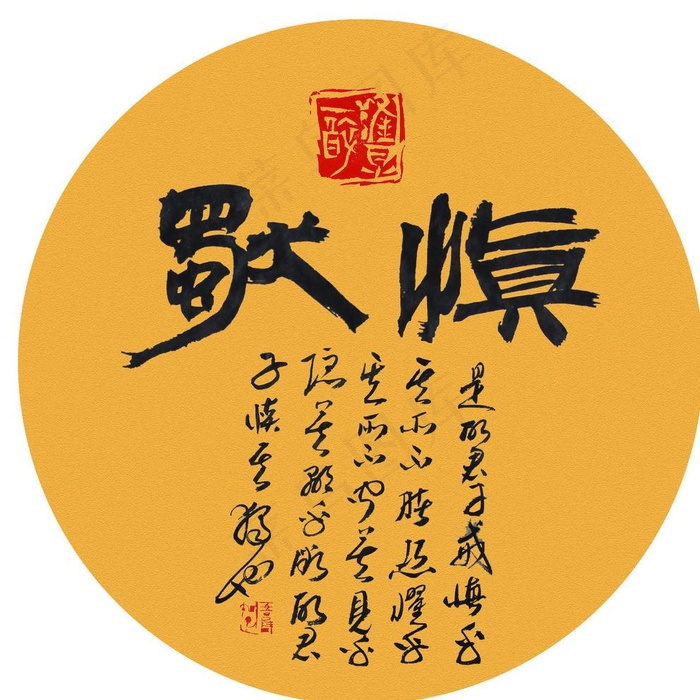 慎獨
是故君子戒慎乎
其所不睹恐懼乎
其所不聞莫見乎
隐莫顯乎微故君
子慎其獨也
菜鸟图库